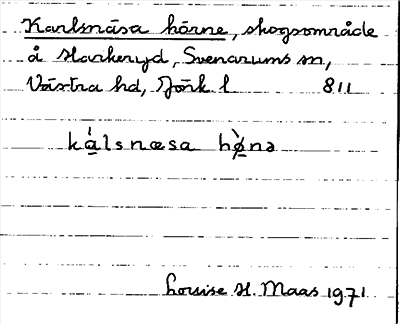 Karlsnäsa hörne, skogsområde
å Harkeryd, Svenarums sn,
Västra hd, Jönk. l 811
kálsnæsa hø̀nə
Louise H. Maas 1971